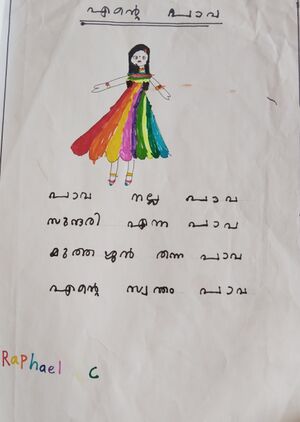 എന്റെ പാവ
പാവ നല്ല പാവ
സുന്ദരി എന്ന പാവ
മുത്തശ്ശൻ തന്ന പാവ
എന്റെ സ്വന്തം പാവ
Raphael C